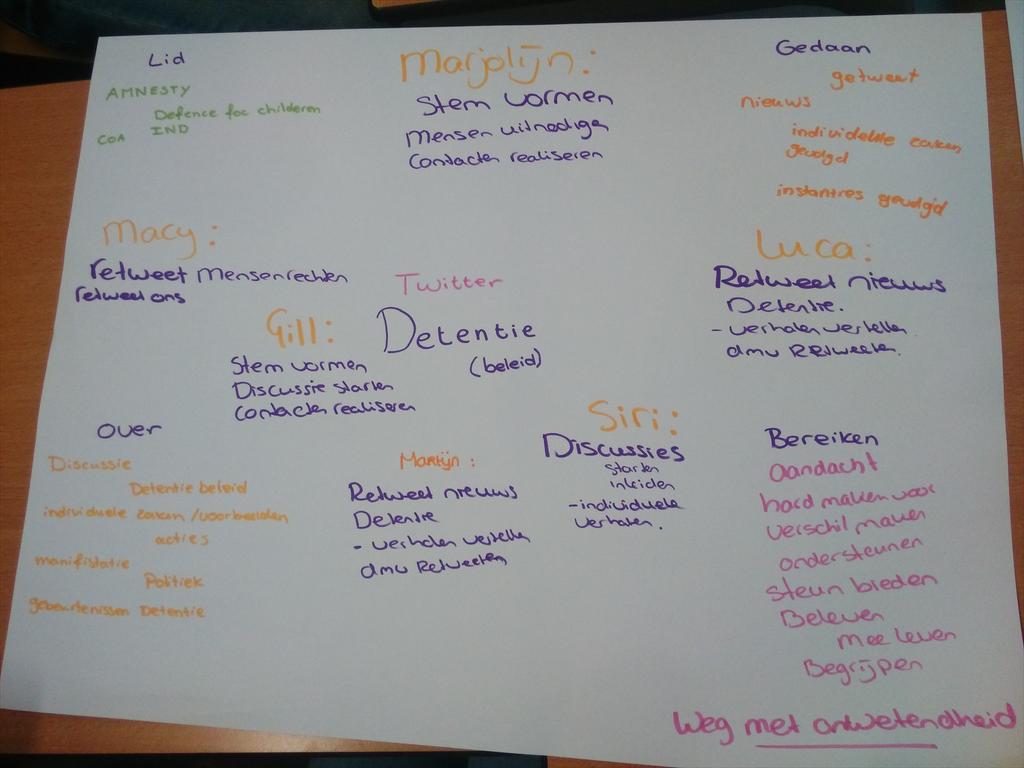 Lid
AMNESTY
Defence foc childeren
COA IND
Marjolijn:
Stem vormen
Mensen uitnodigen
Contacten realiseren
Gedaan
getweet
nieuws
individuelle zaken
gevolgd
instantres gevolgd
Macy:
retweet mensenrechten
retweet ons
Twitter
Detentie
(beleid)
Luca:
Retweet nieuws
Detentie.
- verhalen vertellen
dmv REtweeten.
Gill:
Stem vormen
Discussie starten
contacten realiseren
over
Discussie
Detentie beleid
individuele zaken/voorbeelden
acties
manifistatie
Politiek
gebeurtenissen Detentie
Martijn:
Retweet nieuws
Detentie
- verhalen vertellen
dmv Retweeten
Siri:
Discussies
starten
inleiden
- individuele
verhalen.
Bereiken
aandacht
hard maken voor
verschil maken
ondersteunen
steun bieden
Beleven
mee leven
Begrijpen
Weg met onwetendheid